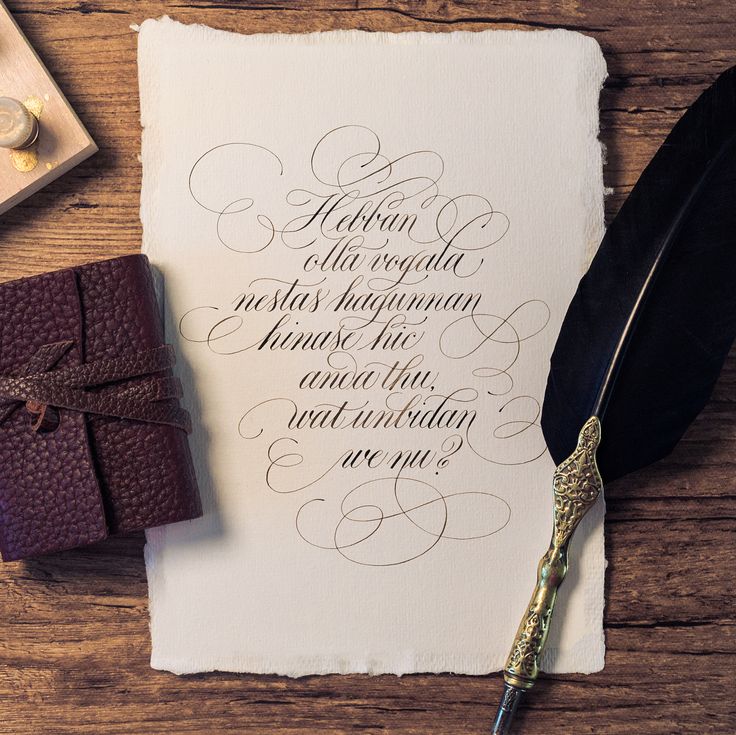 Hebban
olla vogala
nestas hagunnan
hinase hic
anda thu,
wat unbidan
we nu?